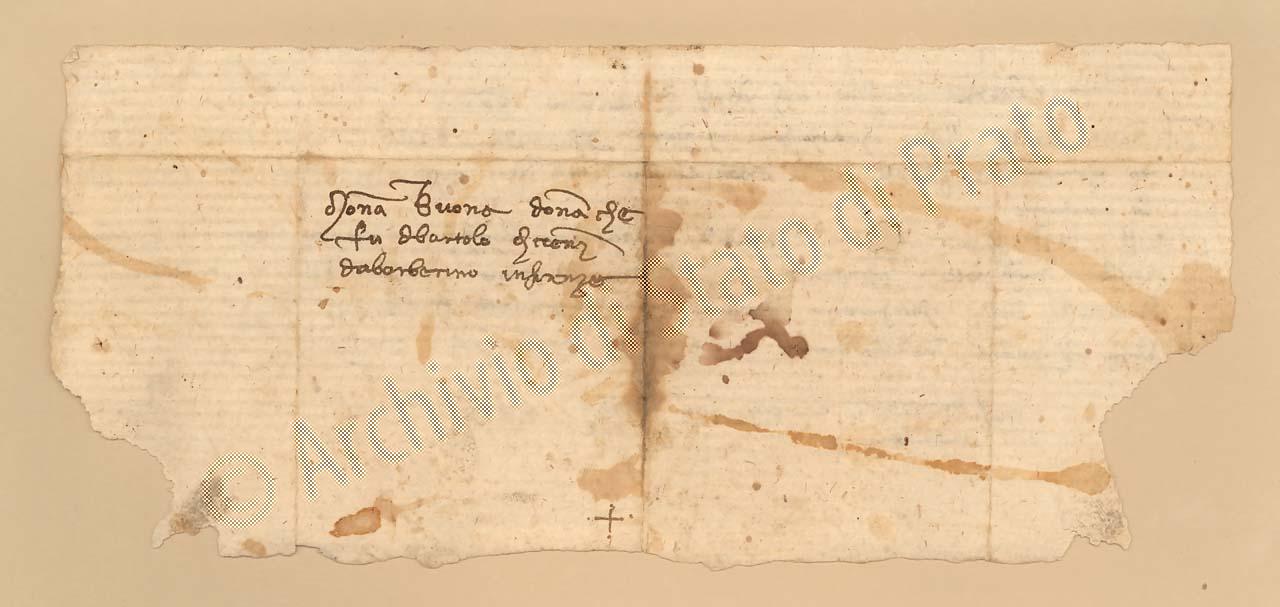 Mona Buona dona che
fu dbartolo
dabarberino infirenze
© Archivio di Stato di Prato